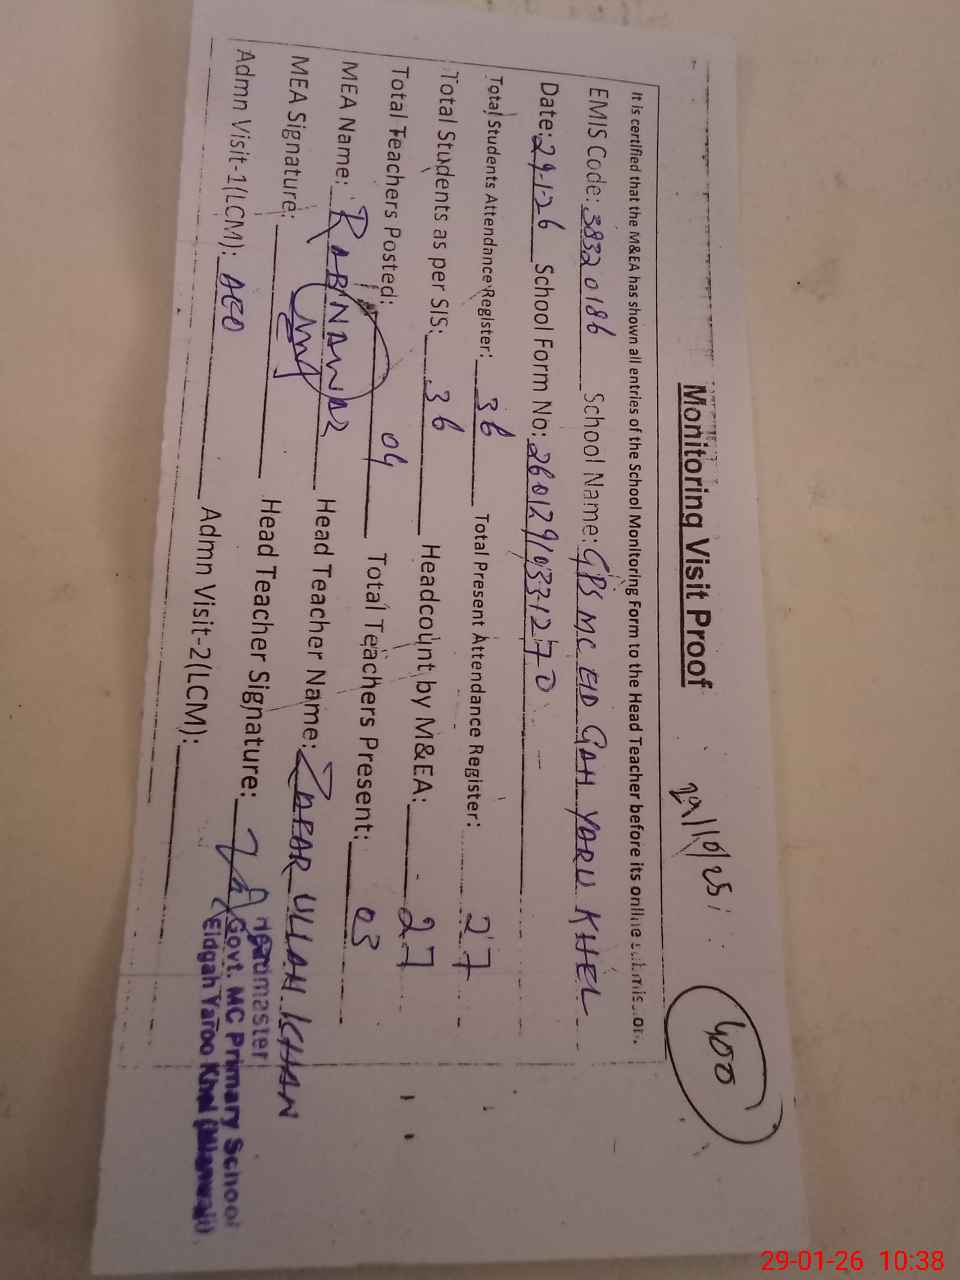 Monitoring Visit Proof
29/10/25
400
It is certified that the M&EA has shown all entries of the School Monitoring Form to the Head Teacher before its online submission.
EMIS Code: 38320186 School Name: GPS MC EID GAH YARU KHEL
Date: 29-1-26 School Form No: 26012910331270
Total Students Attendance Register: 36 Total Present Attendance Register: 27
Total Students as per SIS: 36 Headcount by M&EA: 27
Total Teachers Posted: 04 Total Teachers Present: 03
MEA Name: RABNAWAZ Head Teacher Name: ZAFAR ULLAH KHAN
MEA Signature: Head Teacher Signature:
Admn Visit-1(LCM): AEO Admn Visit-2(LCM):
Headmaster
Govt. MC Primary School
Eidgah Yaroo Khel (Mianwali)
29-01-26 10:38